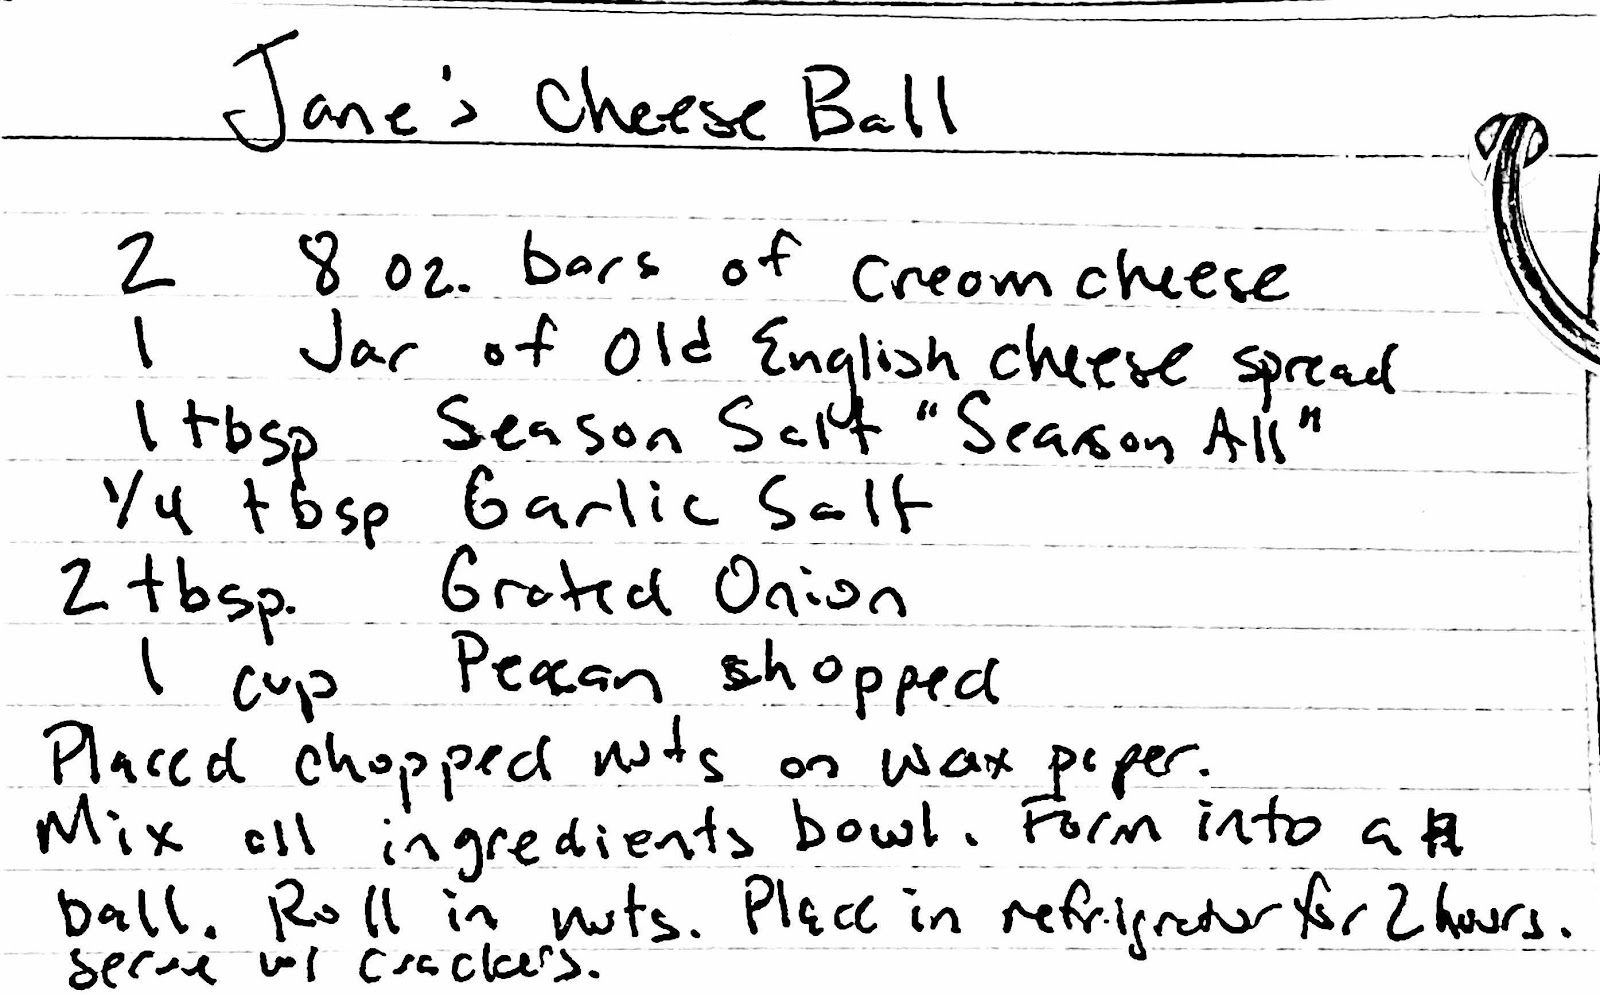 Jane's Cheese Ball
2 8 oz. bars of cream cheese
1 Jar of Old English cheese spread
1 tbsp Season Salt "Season All"
1/4 tbsp Garlic Salt
2 tbsp. Grated Onion
1 cup Pecan shopped
Placed chopped nuts on wax paper.
Mix all ingredients bowl. Form into a
ball. Roll in nuts. Place in refrigrator for 2 hours.
Serve w/ crackers.